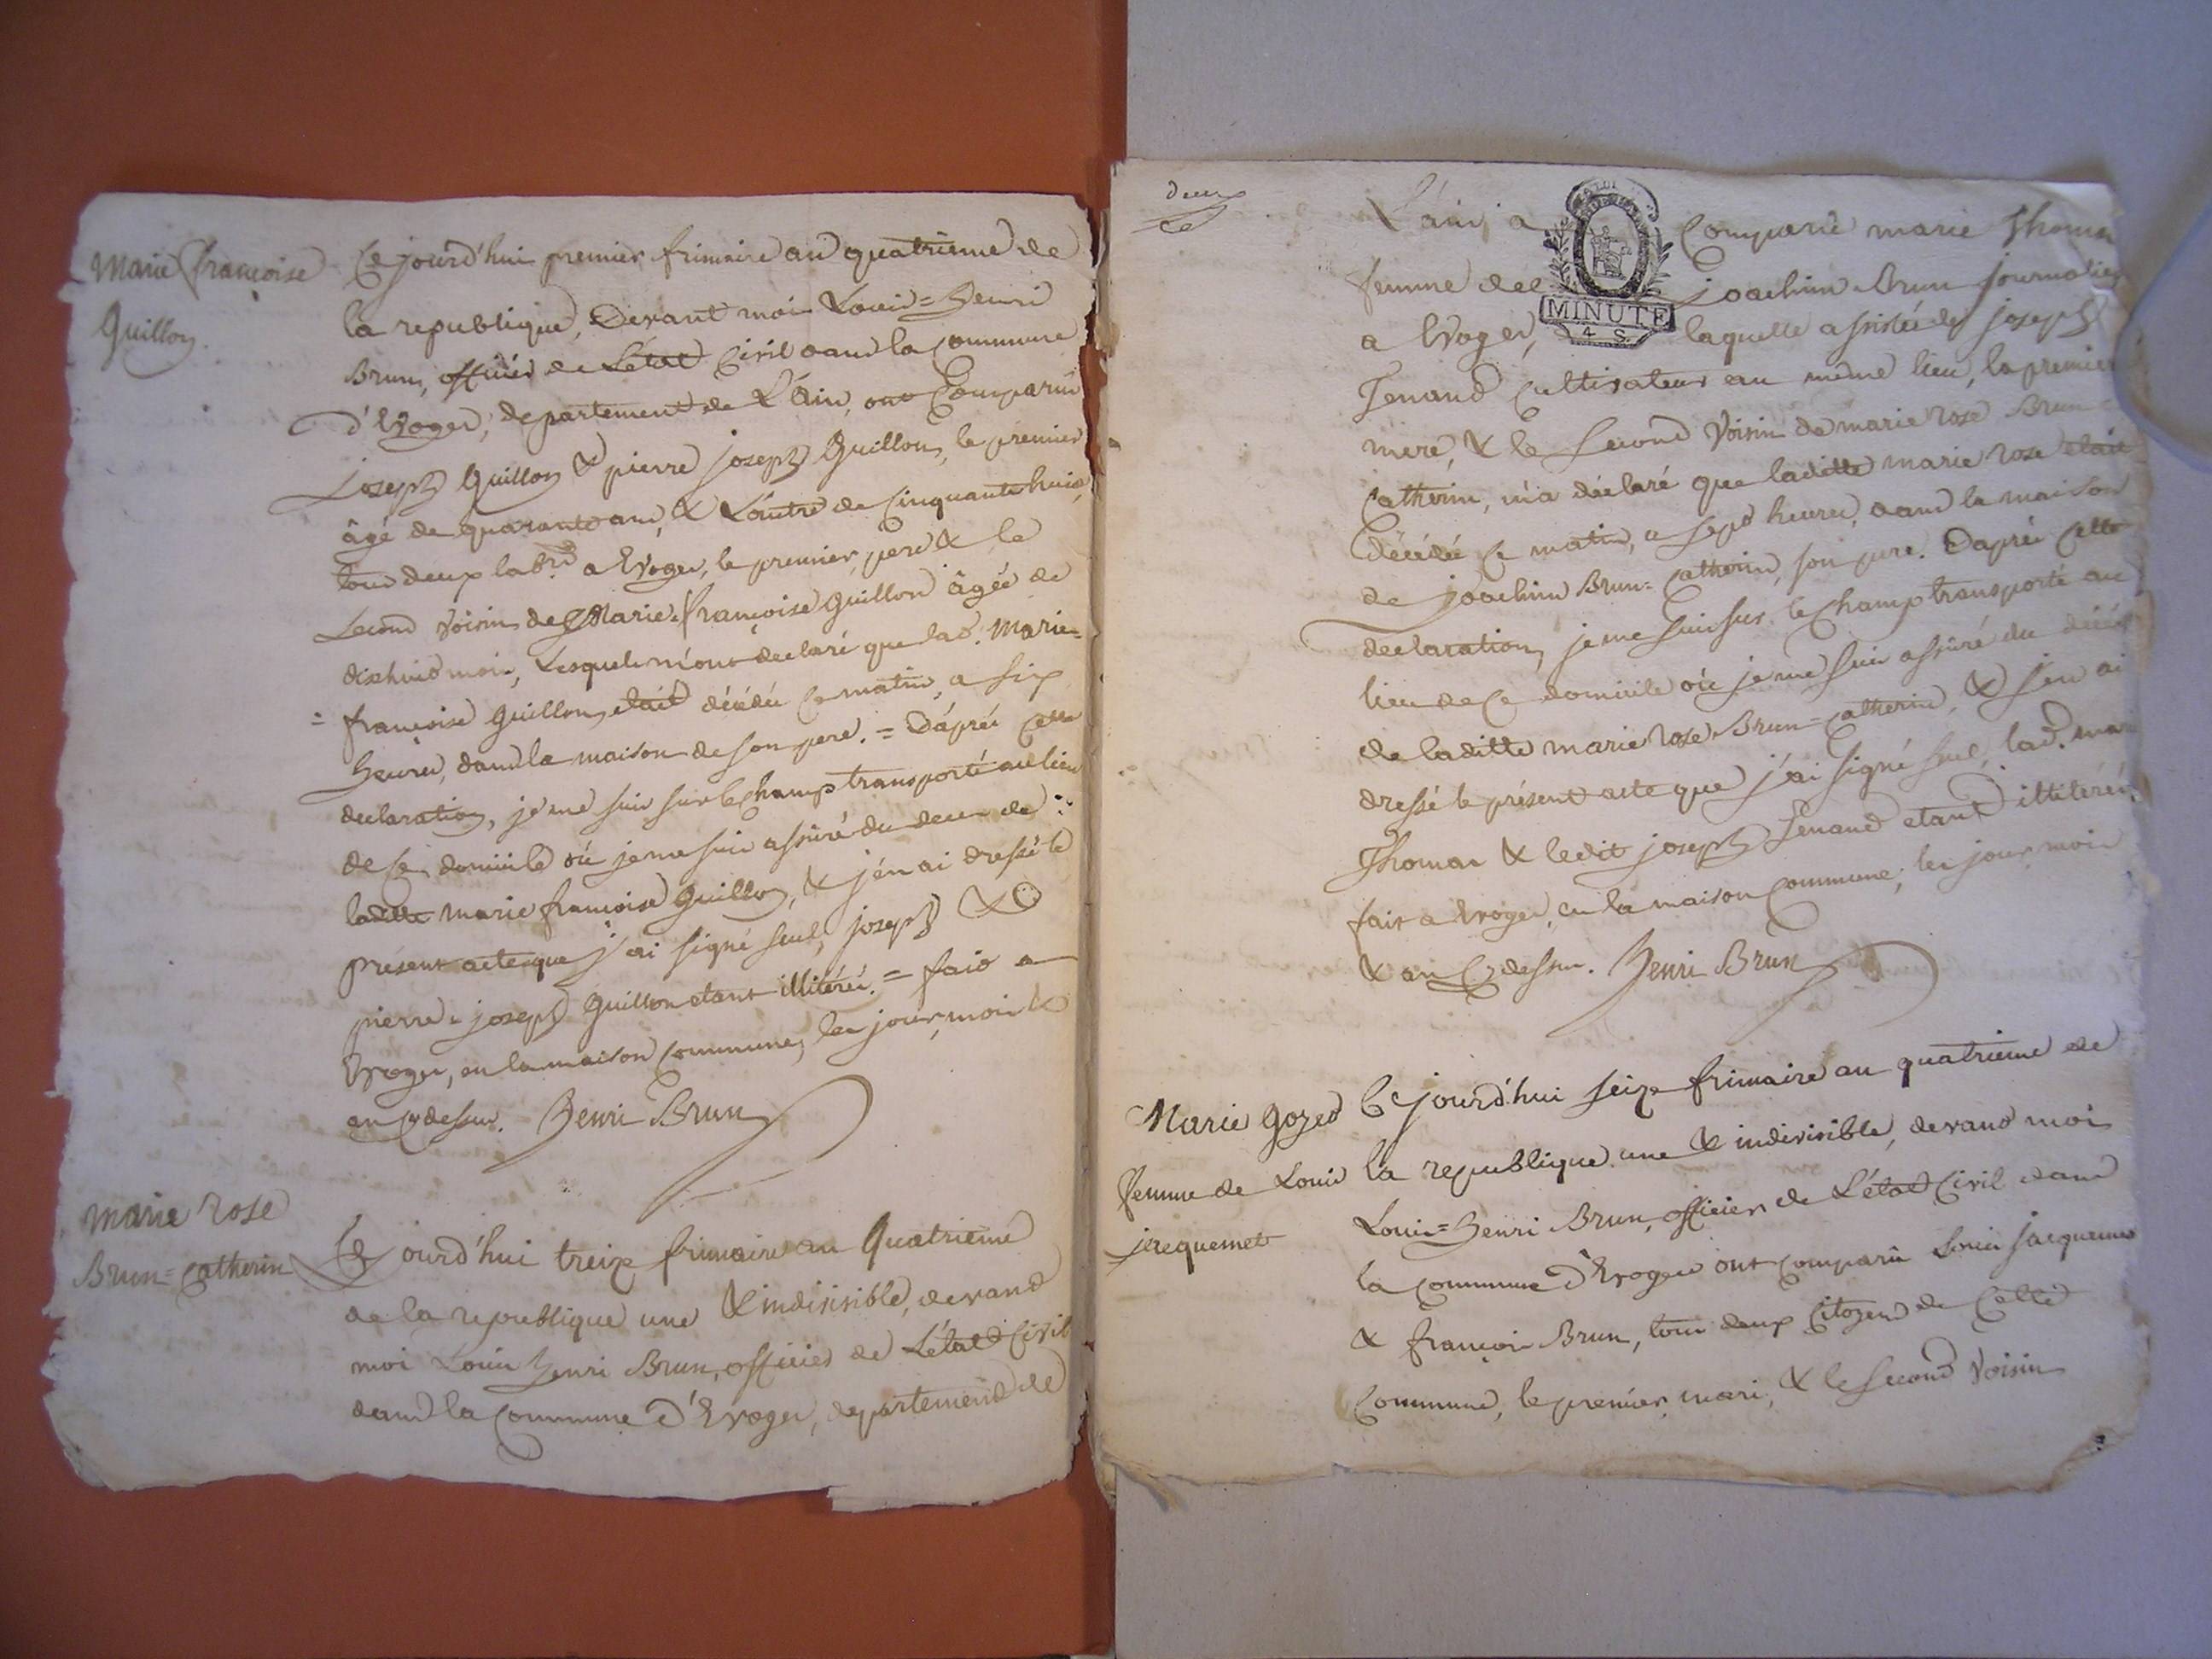 Marie Françoise
Guillon
Ce jourd'hui premier frimaire an quatrieme de
la republique, Devant moi Louis=henri
Brun, officier de L'état Civil dans la commune
d'Evoges, departement de L'Ain, ont Comparu
joseph Guillon & pierre joseph Guillon, le premier
âgé de quarante ans, & L'autre de Cinquante huit,
tous deux lab.rs a Evoges, le premier, pere & le
Second voisin de Marie françoise Guillon âgée de
dixhuit mois, Lesquels m'ont declaré que lad. Marie=
=françoise Guillon, etait décédée Ce matin, a six
heures, dans la maison de son pere. = D'aprés Cette
declaration, je me suis sur le Champ transporté au lieu
de Ce domicile où je me suis assuré du deces de
laditte marie françoise Guillon, & j'en ai dressé le
présent acte que j'ai signé seul, joseph &
pierre=joseph Guillon etant illitérés. = fait a
Evoges, en la maison Commune, les jour, mois &
an Cydessus. Henri Brun
Marie rose
Brun=Catherin
Ce jourd'hui treize frimaire an Quatrieme
de la republique une & indivisible, devant
moi Louis henri Brun, officier de L'état Civil
dans la Commune d'Evoges, departement de
deux
L'ain, a Comparu marie Thomas
MINUTE
4 S.
femme de joachim Brun journalier
a Evoges, laquelle assistée de joseph
Tenand Cultivateur au même lieu, la premiere
mere, & le Second Voisin de marie rose Brun
Catherin, m'a déclaré que laditte marie rose etait
décédée Ce matin, a sept heures, dans la maison
de joachim Brun=Catherin, son pere. D'aprés Cette
declaration, je me suis sur le Champ transporté au
lieu de Ce domicile où je me suis assuré du décés
de laditte marie rose Brun=Catherin, & j'en ai
dressé le présent acte que j'ai signé seul, lad. marie
Thomas & ledit joseph Tenand etant illitérés.
fait a Evoges, en la maison Commune, les jour, mois
& an Cydessus. Henri Brun
Marie Gozed
femme de Louis
jacquemet
Ce jourd'hui seize frimaire an quatrieme de
la republique une & indivisible, devant moi
Louis=henri Brun, officier de L'état Civil dans
la Commune d'Evoges ont Comparu Louis jacquemet
& françois Brun, tous deux Citoyens de Cette
Commune, le premier, mari, & le Second Voisin